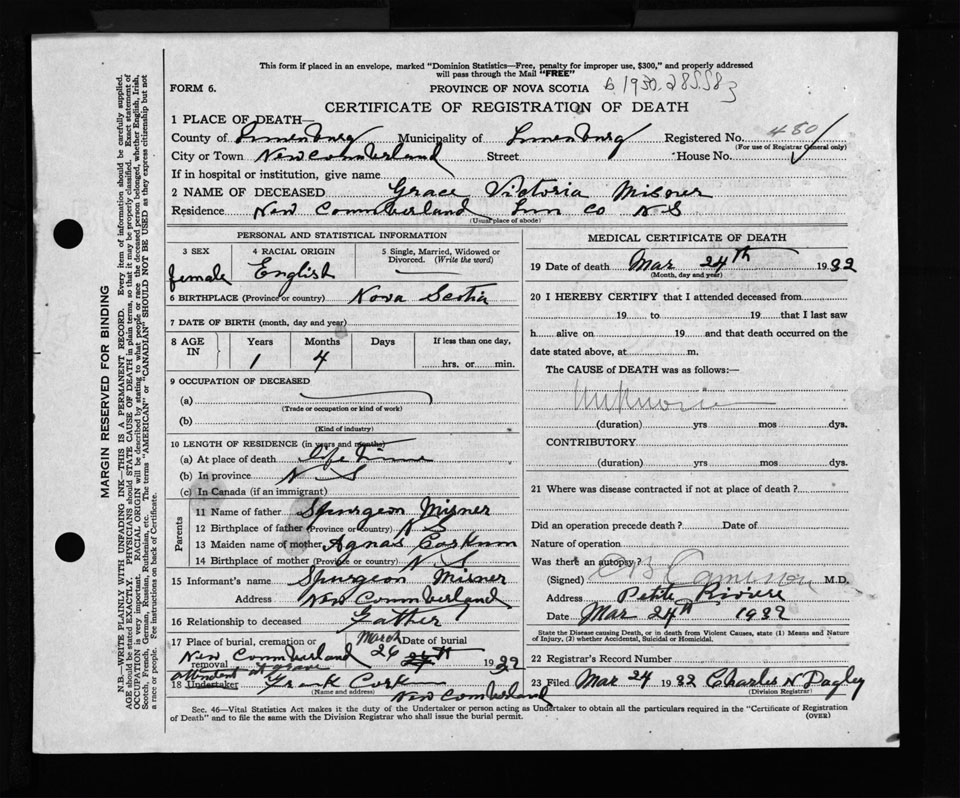 This form if placed in an envelope, marked "Dominion Statistics—Free, penalty for improper use, $300," and properly addressed
will pass through the Mail "FREE"
FORM 6. PROVINCE OF NOVA SCOTIA
CERTIFICATE OF REGISTRATION OF DEATH
1 PLACE OF DEATH—
County of Lunenburg Municipality of Lunenburg Registered No. 480
(For use of Registrar General only)
City or Town New Comberland Street House No.
If in hospital or institution, give name
2 NAME OF DECEASED Grace Victoria Misner
Residence New Commberland Lun Co N S
(Usual place of abode)
PERSONAL AND STATISTICAL INFORMATION
3 SEX 4 RACIAL ORIGIN 5 Single, Married, Widowed or
Divorced. (Write the word)
female English
6 BIRTHPLACE (Province or country) Nova Scotia
7 DATE OF BIRTH (month, day and year)
8 AGE IN Years Months Days If less than one day,
1 4 hrs. or min.
9 OCCUPATION OF DECEASED
(a)
(Trade or occupation or kind of work)
(b)
(Kind of industry)
10 LENGTH OF RESIDENCE (in years and months)
(a) At place of death life time
(b) In province N S
(c) In Canada (if an immigrant)
Parents
11 Name of father Spurgeon Misner
12 Birthplace of father (Province or country) N S
13 Maiden name of mother Agnas Corkum
14 Birthplace of mother (Province or country) N S
15 Informant's name Spurgeon Misner
Address New Commberland
16 Relationship to deceased Father
17 Place of burial, cremation or Date of burial
March
New Commberland 26 1932
removal
attendent at grave
18 Undertaker Frank Cork
(Name and address) New Comberland
MEDICAL CERTIFICATE OF DEATH
19 Date of death Mar 24th 1932
(Month, day and year)
20 I HEREBY CERTIFY that I attended deceased from
19 to 19 that I last saw
h alive on 19 and that death occurred on the
date stated above, at m.
The CAUSE of DEATH was as follows:—
Unknown
(duration) yrs mos dys.
CONTRIBUTORY
(duration) yrs mos dys.
21 Where was disease contracted if not at place of death?
Did an operation precede death? Date of
Nature of operation
Was there an autopsy?
(Signed) Cameron M.D.
Address Petite Riviere
Date Mar 24th 1932
State the Disease causing Death, or in death from Violent Causes, state (1) Means and Nature
of Injury, (2) whether Accidental, Suicidal or Homicidal.
22 Registrar's Record Number
23 Filed Mar 24 1932 Charles N Dagley
(Division Registrar)
Sec. 46—Vital Statistics Act makes it the duty of the Undertaker or person acting as Undertaker to obtain all the particulars required in the "Certificate of Registration
of Death" and to file the same with the Division Registrar who shall issue the burial permit. (OVER)
MARGIN RESERVED FOR BINDING
N.B.—WRITE PLAINLY WITH UNFADING INK—THIS IS A PERMANENT RECORD. Every item of information should be carefully supplied.
AGE should be stated EXACTLY. PHYSICIANS should STATE CAUSE OF DEATH in plain terms, so that it may be properly classified. Exact statement of
OCCUPATION is very important. RACIAL ORIGIN will be described by stating to what people or race the deceased person belonged, whether English, Irish,
Scotch, French, German, Russian, Ruthenian, etc. The terms "AMERICAN" or "CANADIAN" SHOULD NOT BE USED as they express citizenship but not
a race or people. See instructions on back of Certificate.